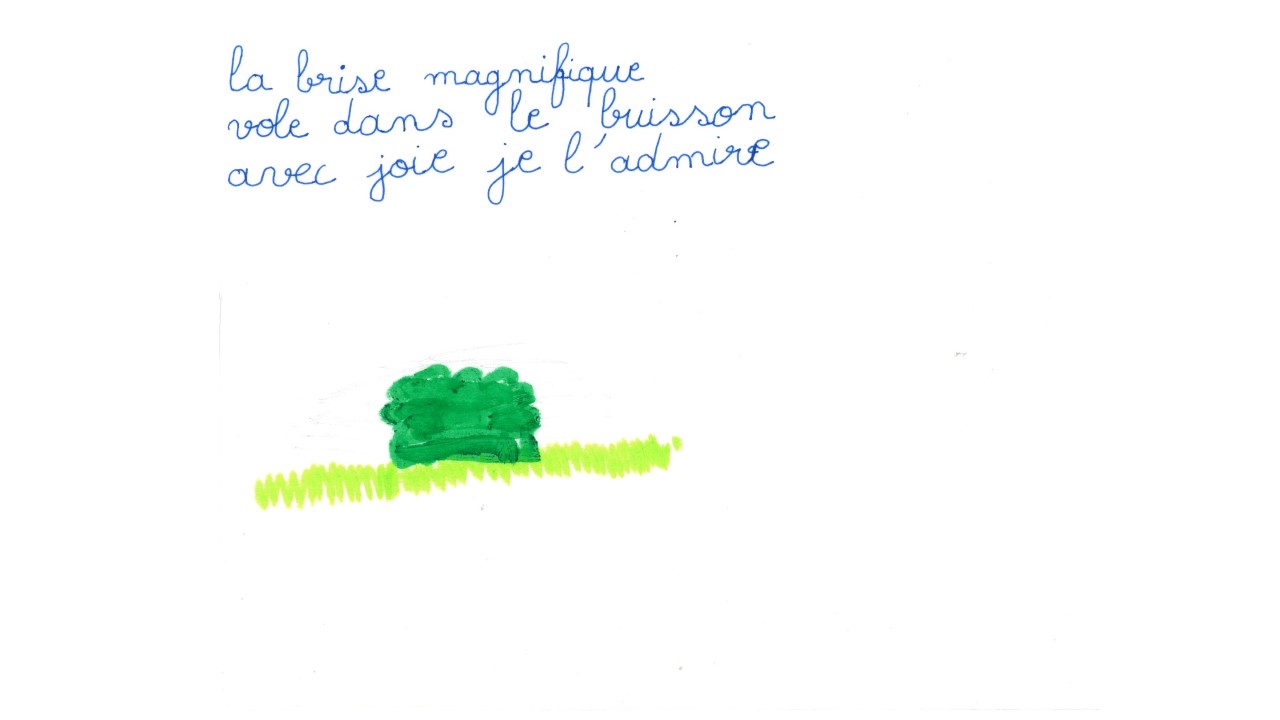 la brise magnifique
vole dans le buisson
avec joie je l'admire